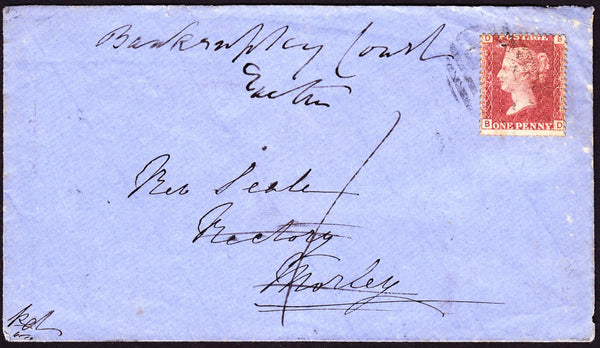 Bankruptcy Court
Exeter
D B
POSTAGE
B D
ONE PENNY
Rev Seale
Rectory
Morley